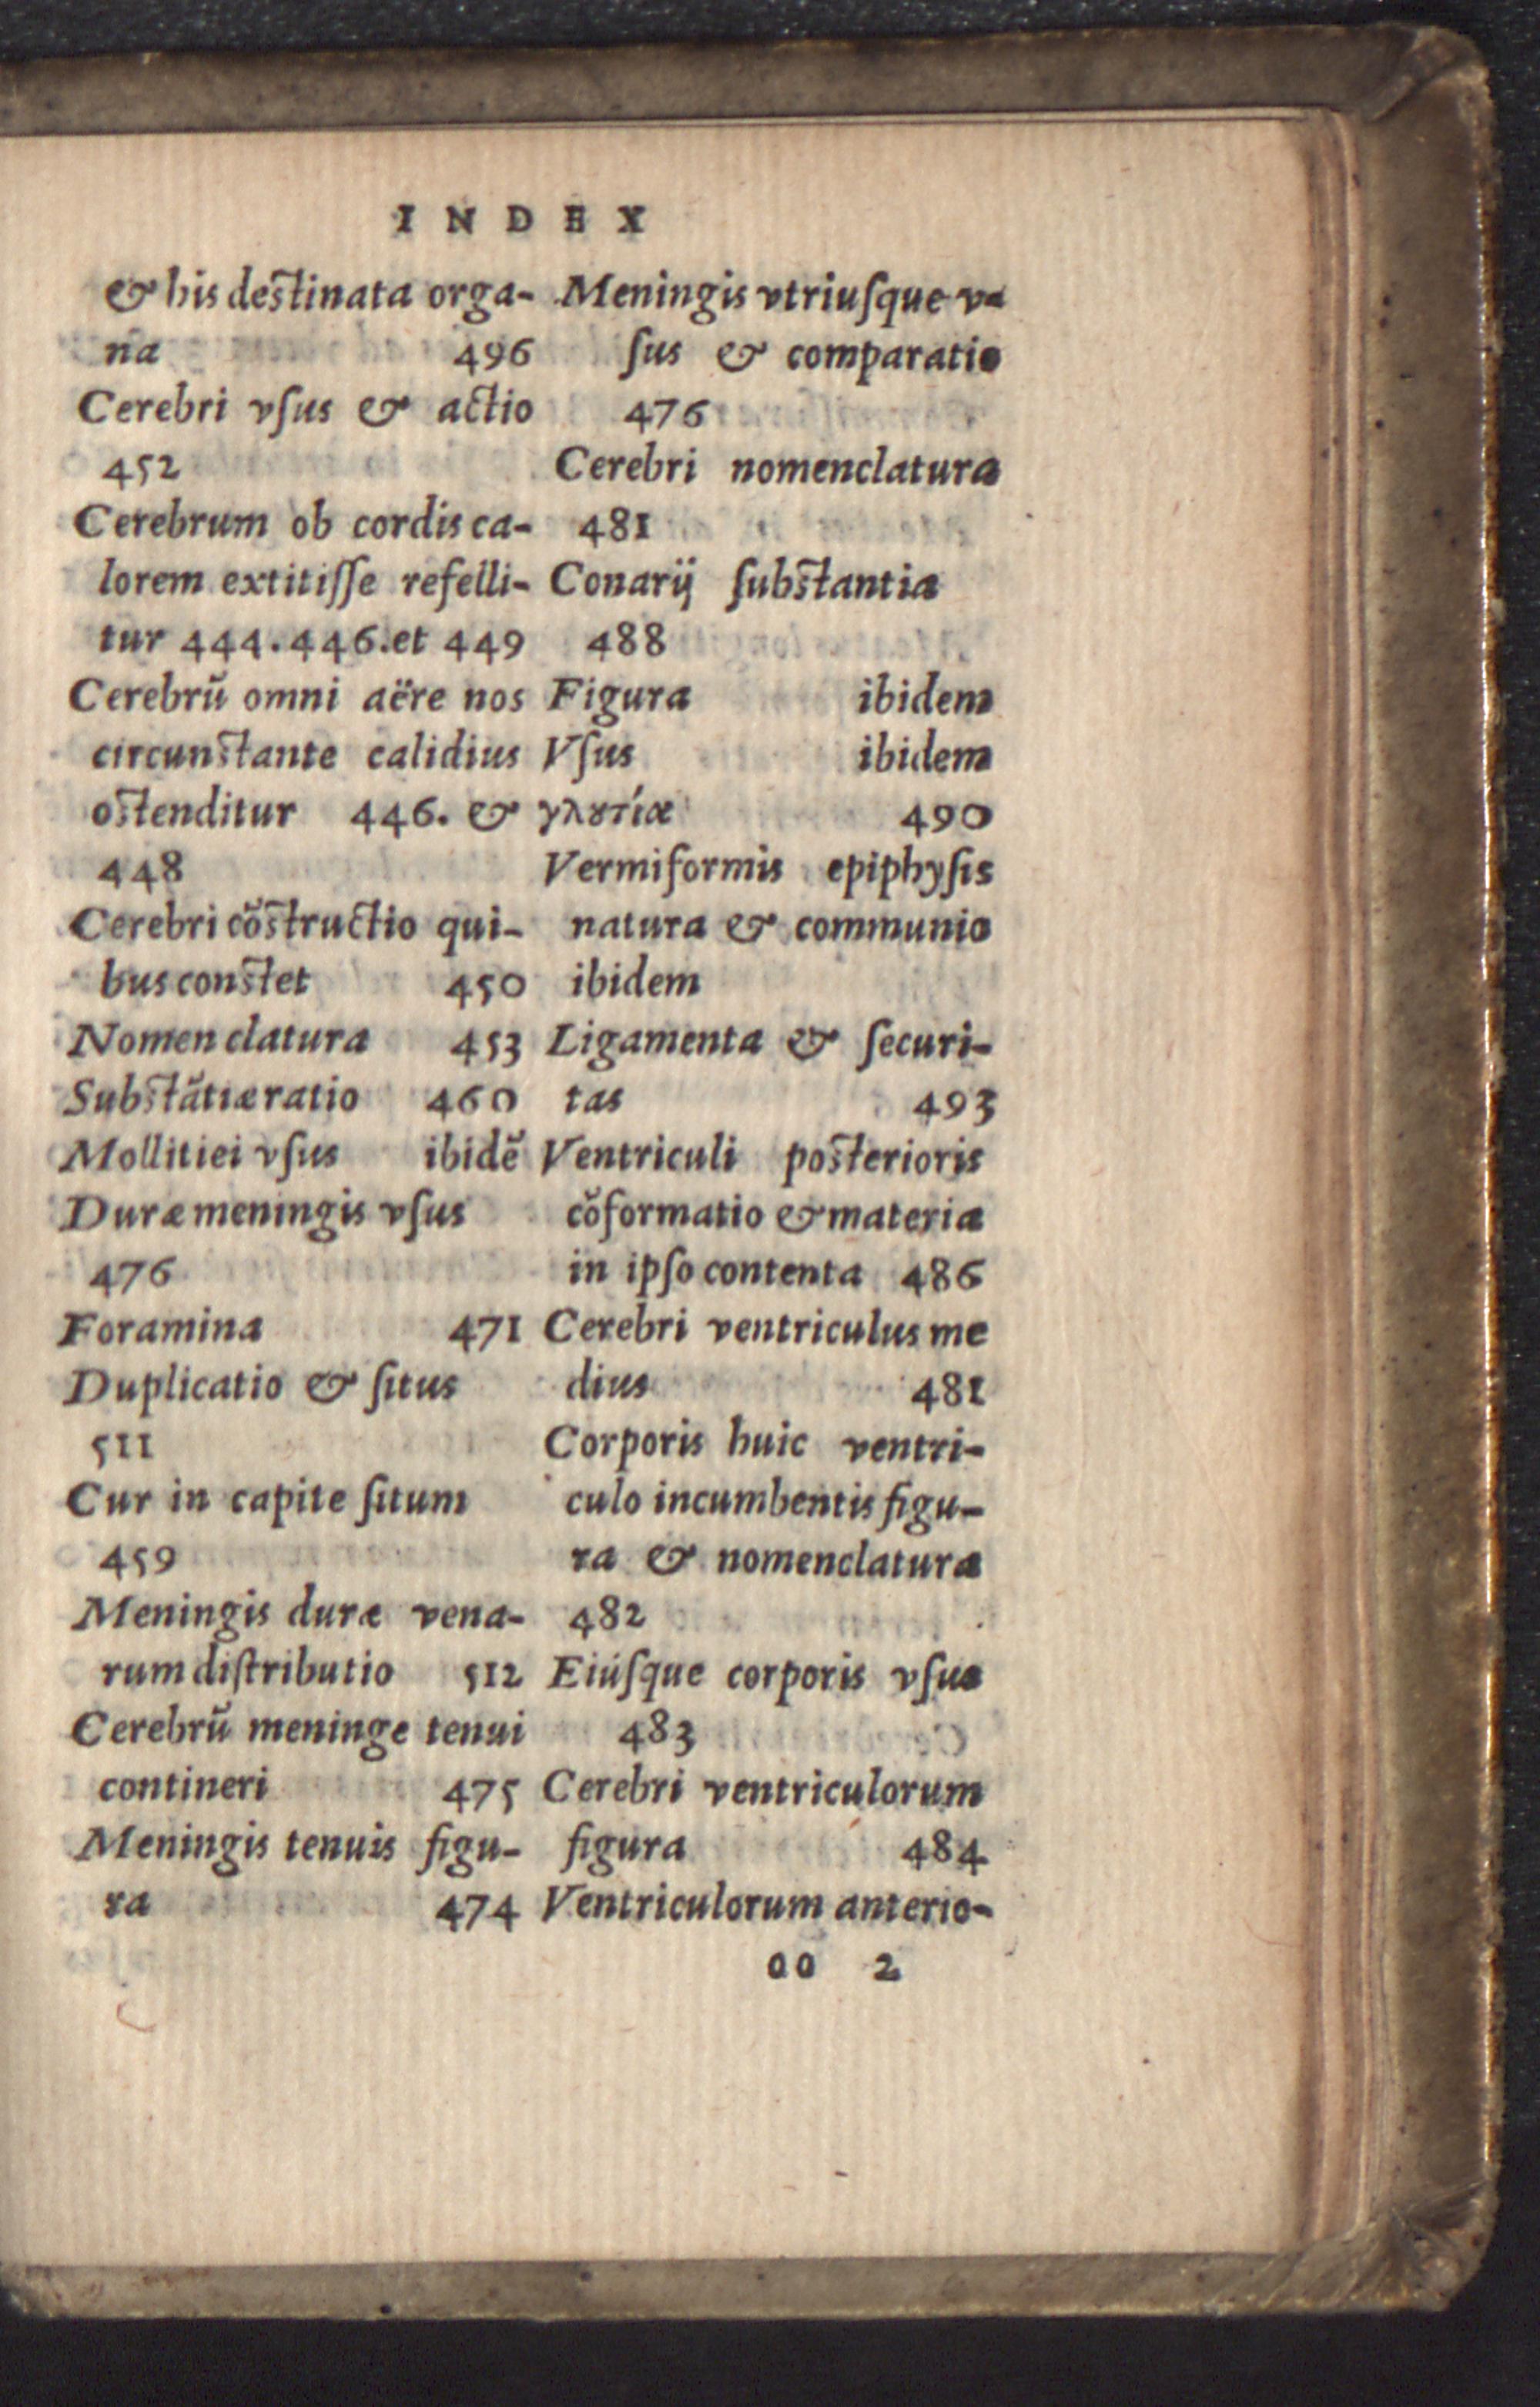 INDEX
& his destinata orga-
na 496
Cerebri vſus & actio
452
Cerebrum ob cordis ca-
lorem extitiſſe refelli-
tur 444.446.et 449
Cerebrū omni aëre nos
circunstante calidius
ostenditur 446. &
448
Cerebri cōstructio qui-
bus constet 450
Nomenclatura 453
Substātiæ ratio 460
Mollitiei vſus ibidē
Duræ meningis vſus
476
Foramina 471
Duplicatio & ſitus
511
Cur in capite ſitum
459
Meningis duræ vena-
rum diſtributio 512
Cerebrū meninge tenui
contineri 475
Meningis tenuis figu-
ra 474
Meningis vtriuſque v-
ſus & comparatio
476
Cerebri nomenclatura
481
Conarij ſubstantia
488
Figura ibidem
Vſus ibidem
γλȣτία 490
Vermiformis epiphyſis
natura & communio
ibidem
Ligamenta & ſecuri-
tas 493
Ventriculi posterioris
cōformatio & materia
in ipſo contenta 486
Cerebri ventriculus me
dius 481
Corporis huic ventri-
culo incumbentis figu-
ra & nomenclatura
482
Eiúſque corporis vſus
483
Cerebri ventriculorum
figura 484
Ventriculorum anterio-
oo 2